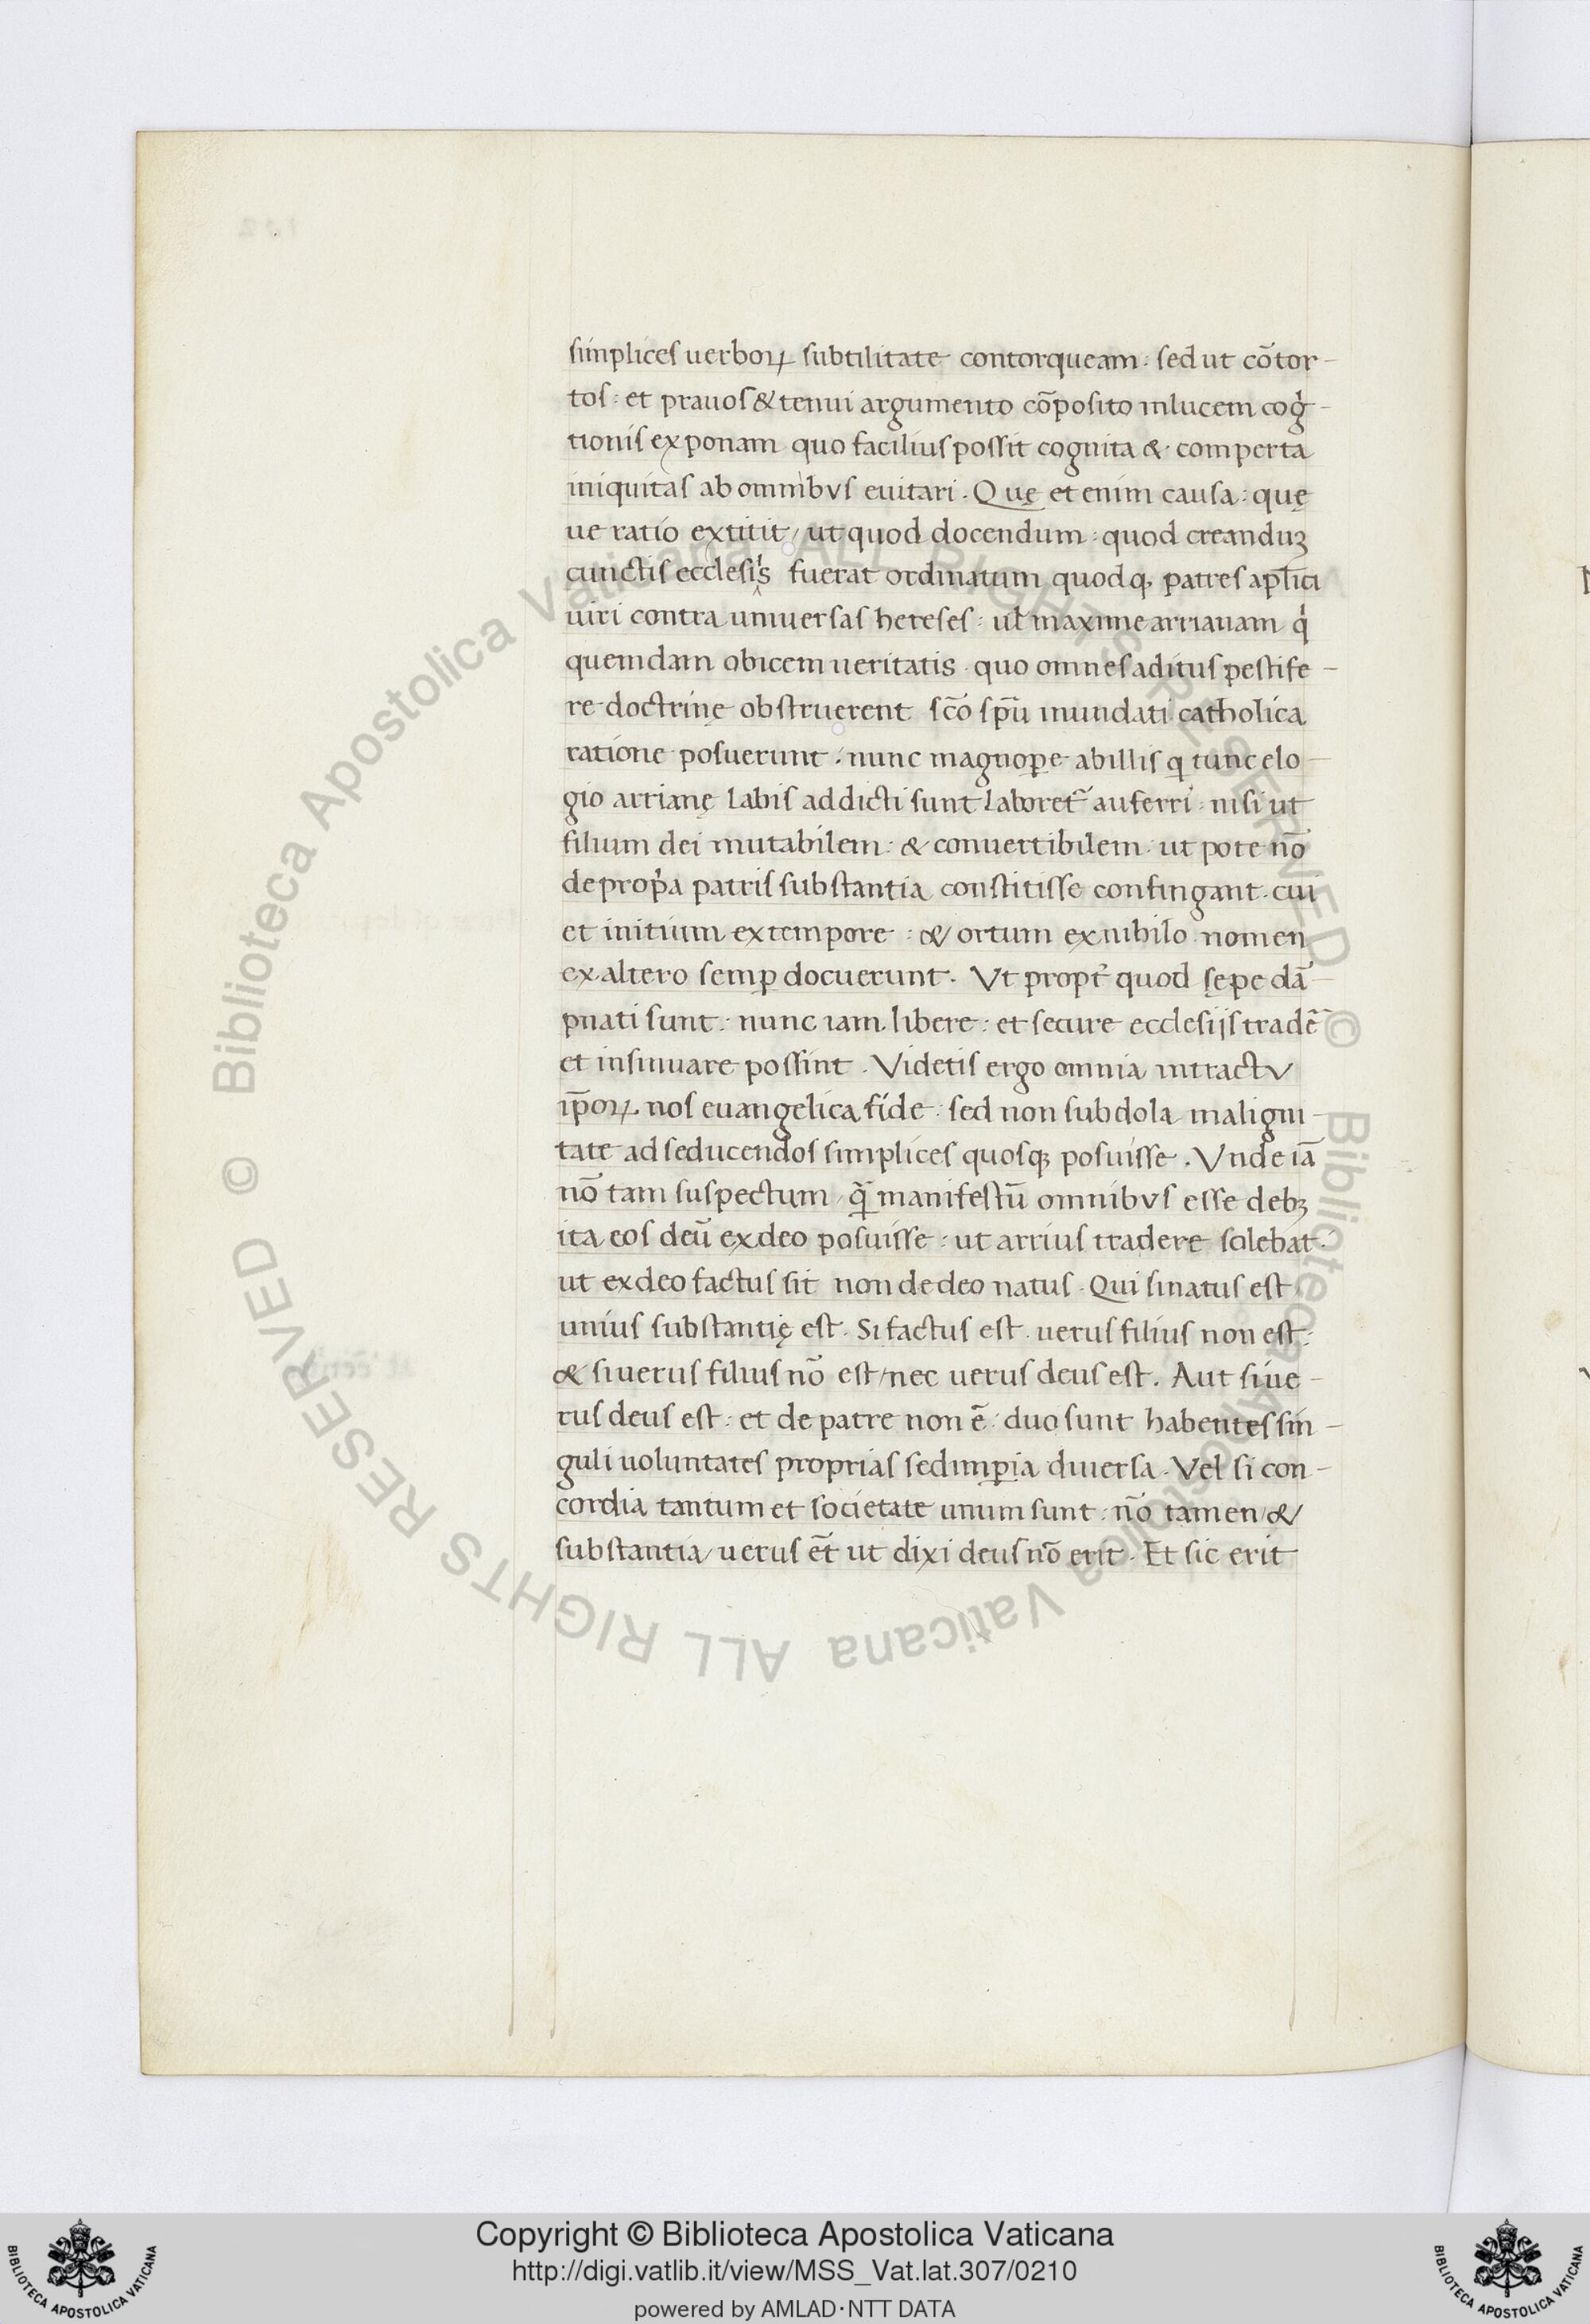 simplices uerboꝝ subtilitate contorqueam : sed ut cōtor-
tos : et prauos & tenui argumento cōposito in lucem cogͥ-
tionis exponam quo facilius possit cognita & comperta
iniquitas ab omnibus euitari . Quę et enim causa : quę
ue ratio extitit / ut quod docendum : quod creanduꝫ
cunctis ecclesiis fuerat ordinatum quodqꝫ patres apl̄ici
uiri contra uniuersas hereses : ul̄ maxime arrianam qͥ
quemdam obicem ueritatis . quo omnes aditus pestife-
re doctrinę obstruerent sc̄o sp̄u mundati catholica
ratione posuerunt : nunc magnoꝑe ab illis qͥ tunc elo-
gio arrianę labis addicti sunt laboret᷑ auferri : nisi ut
filium dei mutabilem : & conuertibilem . ut pote nō
de propͥa patris substantia constitisse confingant . cui
et initium ex tempore : & ortum ex nihilo nomen
ex altero semꝑ docuerunt . Vt propt̄ quod sępe dā-
pnati sunt : nunc iam libere : et secure ecclesijs tradē
et insinuare possint . Videtis ergo omnia in tractu
ip̄oꝝ nos euangelica fide : sed non subdola maligni-
tate ad seducendos simplices quosqꝫ posuisse . Vnde iā
nō tam suspectum / q̄ manifestū omnibus esse debꝫ
ita eos deū ex deo posuisse : ut arrius tradere solebat .
ut ex deo factus sit non de deo natus . Qui si natus est
unius substantię est . Si factus est . uerus filius non est :
& si uerus filius nō est / nec uerus deus est . Aut si ue-
rus deus est : et de patre non ē : duo sunt habentes sin-
guli uoluntates proprias sed imꝑia diuersa . Vel si con-
cordia tantum et societate unum sunt : nō tamen &
substantia / uerus ēt ut dixi deus nō erit . Et sic erit
© Biblioteca Apostolica Vaticana ALL RIGHTS RESERVED © Biblioteca Apostolica Vaticana ALL RIGHTS RESERVED
Copyright © Biblioteca Apostolica Vaticana
http://digi.vatlib.it/view/MSS_Vat.lat.307/0210
powered by AMLAD·NTT DATA
BIBLIOTECA APOSTOLICA VATICANA
BIBLIOTECA APOSTOLICA VATICANA